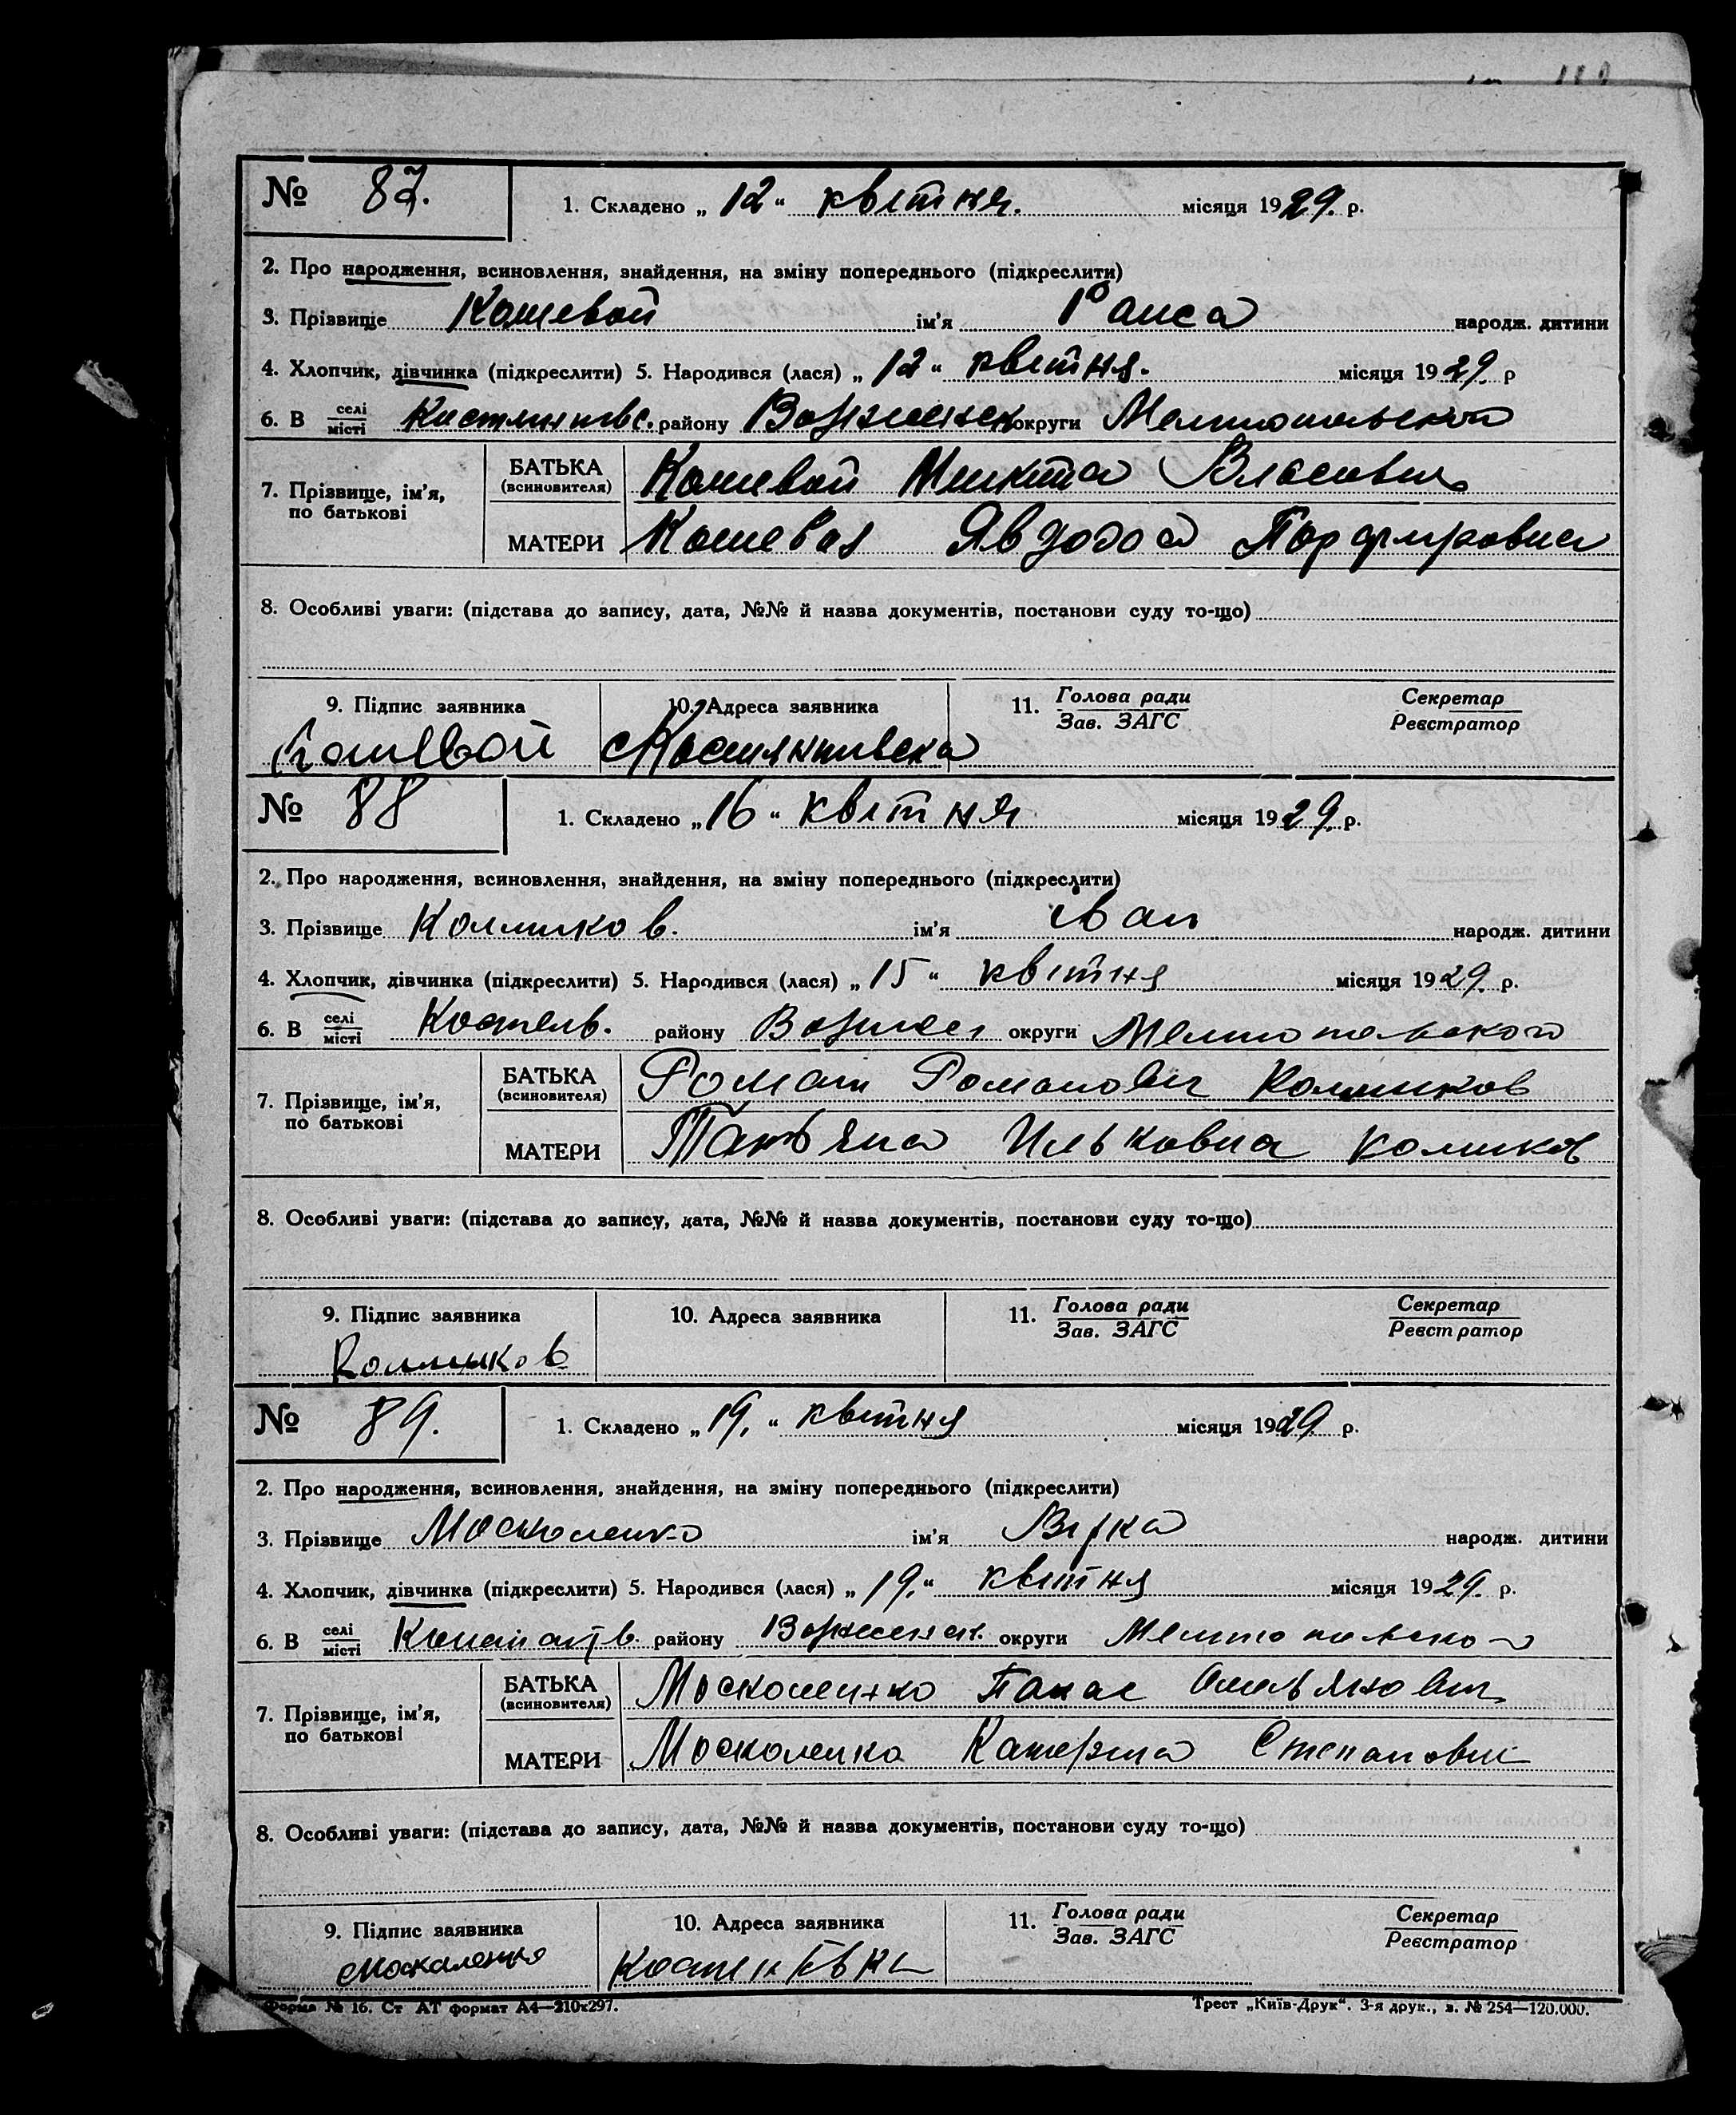 № 87. 1. Складено „12“ квітня. місяця 1929. р.
2. Про народження, всиновлення, знайдення, на зміну попереднього (підкреслити)
3. Прізвище Кошевой ім'я Раиса народж. дитини
4. Хлопчик, дівчинка (підкреслити) 5. Народився (лася) „12“ квітня. місяця 1929. р
6. В селі/місті району округи Мелитопольской
7. Прізвище, ім'я, по батькові
БАТЬКА (всиновителя) Кошевой Микита Власович
МАТЕРИ Кошевая Явдоха
8. Особливі уваги: (підстава до запису, дата, №№ й назва документів, постанови суду то-що)
9. Підпис заявника 10. Адреса заявника 11. Голова ради/Зав. ЗАГС Секретар/Реєстратор
Кошевой
№ 88 1. Складено „16“ квітня місяця 1929. р.
2. Про народження, всиновлення, знайдення, на зміну попереднього (підкреслити)
3. Прізвище ім'я Іван народж. дитини
4. Хлопчик, дівчинка (підкреслити) 5. Народився (лася) „15“ квітня місяця 1929. р.
6. В селі/місті району округи Мелитопольской
7. Прізвище, ім'я, по батькові
БАТЬКА (всиновителя) Роман Романович
МАТЕРИ Татьяна Ильковна
8. Особливі уваги: (підстава до запису, дата, №№ й назва документів, постанови суду то-що)
9. Підпис заявника 10. Адреса заявника 11. Голова ради/Зав. ЗАГС Секретар/Реєстратор
№ 89. 1. Складено „19.“ квітня місяця 1929 р.
2. Про народження, всиновлення, знайдення, на зміну попереднього (підкреслити)
3. Прізвище Москаленко ім'я Вірка народж. дитини
4. Хлопчик, дівчинка (підкреслити) 5. Народився (лася) „19.“ квітня місяця 1929. р.
6. В селі/місті району округи
7. Прізвище, ім'я, по батькові
БАТЬКА (всиновителя) Москаленко Панас Омельянович
МАТЕРИ Москаленко Катерина
8. Особливі уваги: (підстава до запису, дата, №№ й назва документів, постанови суду то-що)
9. Підпис заявника 10. Адреса заявника 11. Голова ради/Зав. ЗАГС Секретар/Реєстратор
Москаленко
Форма № 16. Ст АТ формат А4—210х297. Трест „Київ-Друк“. 3-я друк., з. № 254—120.000.